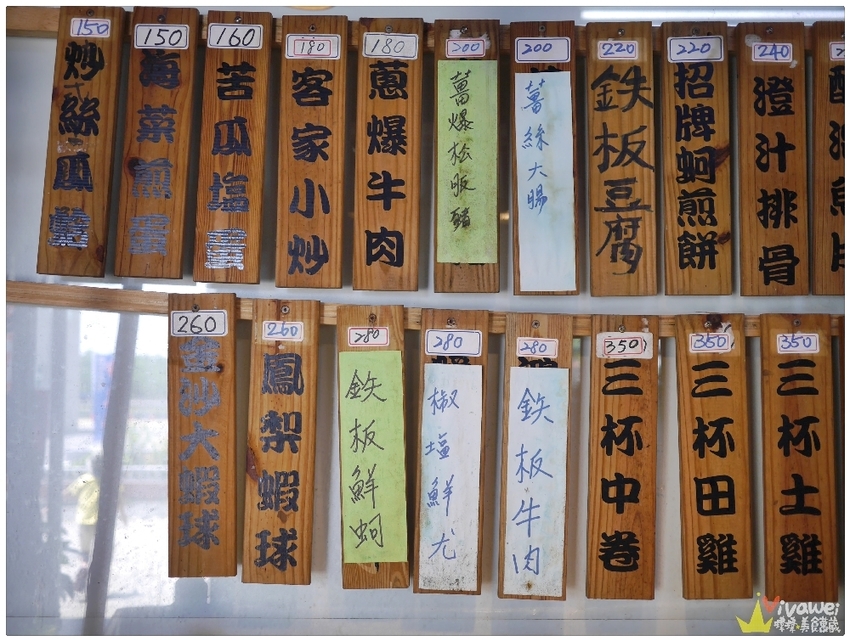 150
炒絲瓜
150
海菜煎蛋
160
苦瓜塩蛋
190
客家小炒
180
蔥爆牛肉
200
薑爆松阪豬
200
薑絲大腸
220
鉄板豆腐
220
招牌蚵煎餅
240
澄汁排骨
260
金沙大蝦球
260
鳳梨蝦球
280
鉄板鮮蚵
280
椒塩鮮尤
280
鉄板牛肉
350
三杯中卷
350
三杯田雞
350
三杯土雞
Vivawei